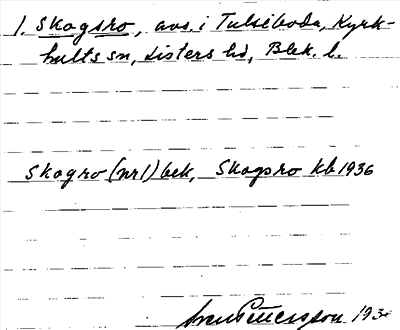 1. Skogsro, avs. i Tulseboda, Kyrk-
hults sn, Listers hd, Blek. l.
Skogro (nr 1) bek, Skogsro kb 1936
Pettersson 193